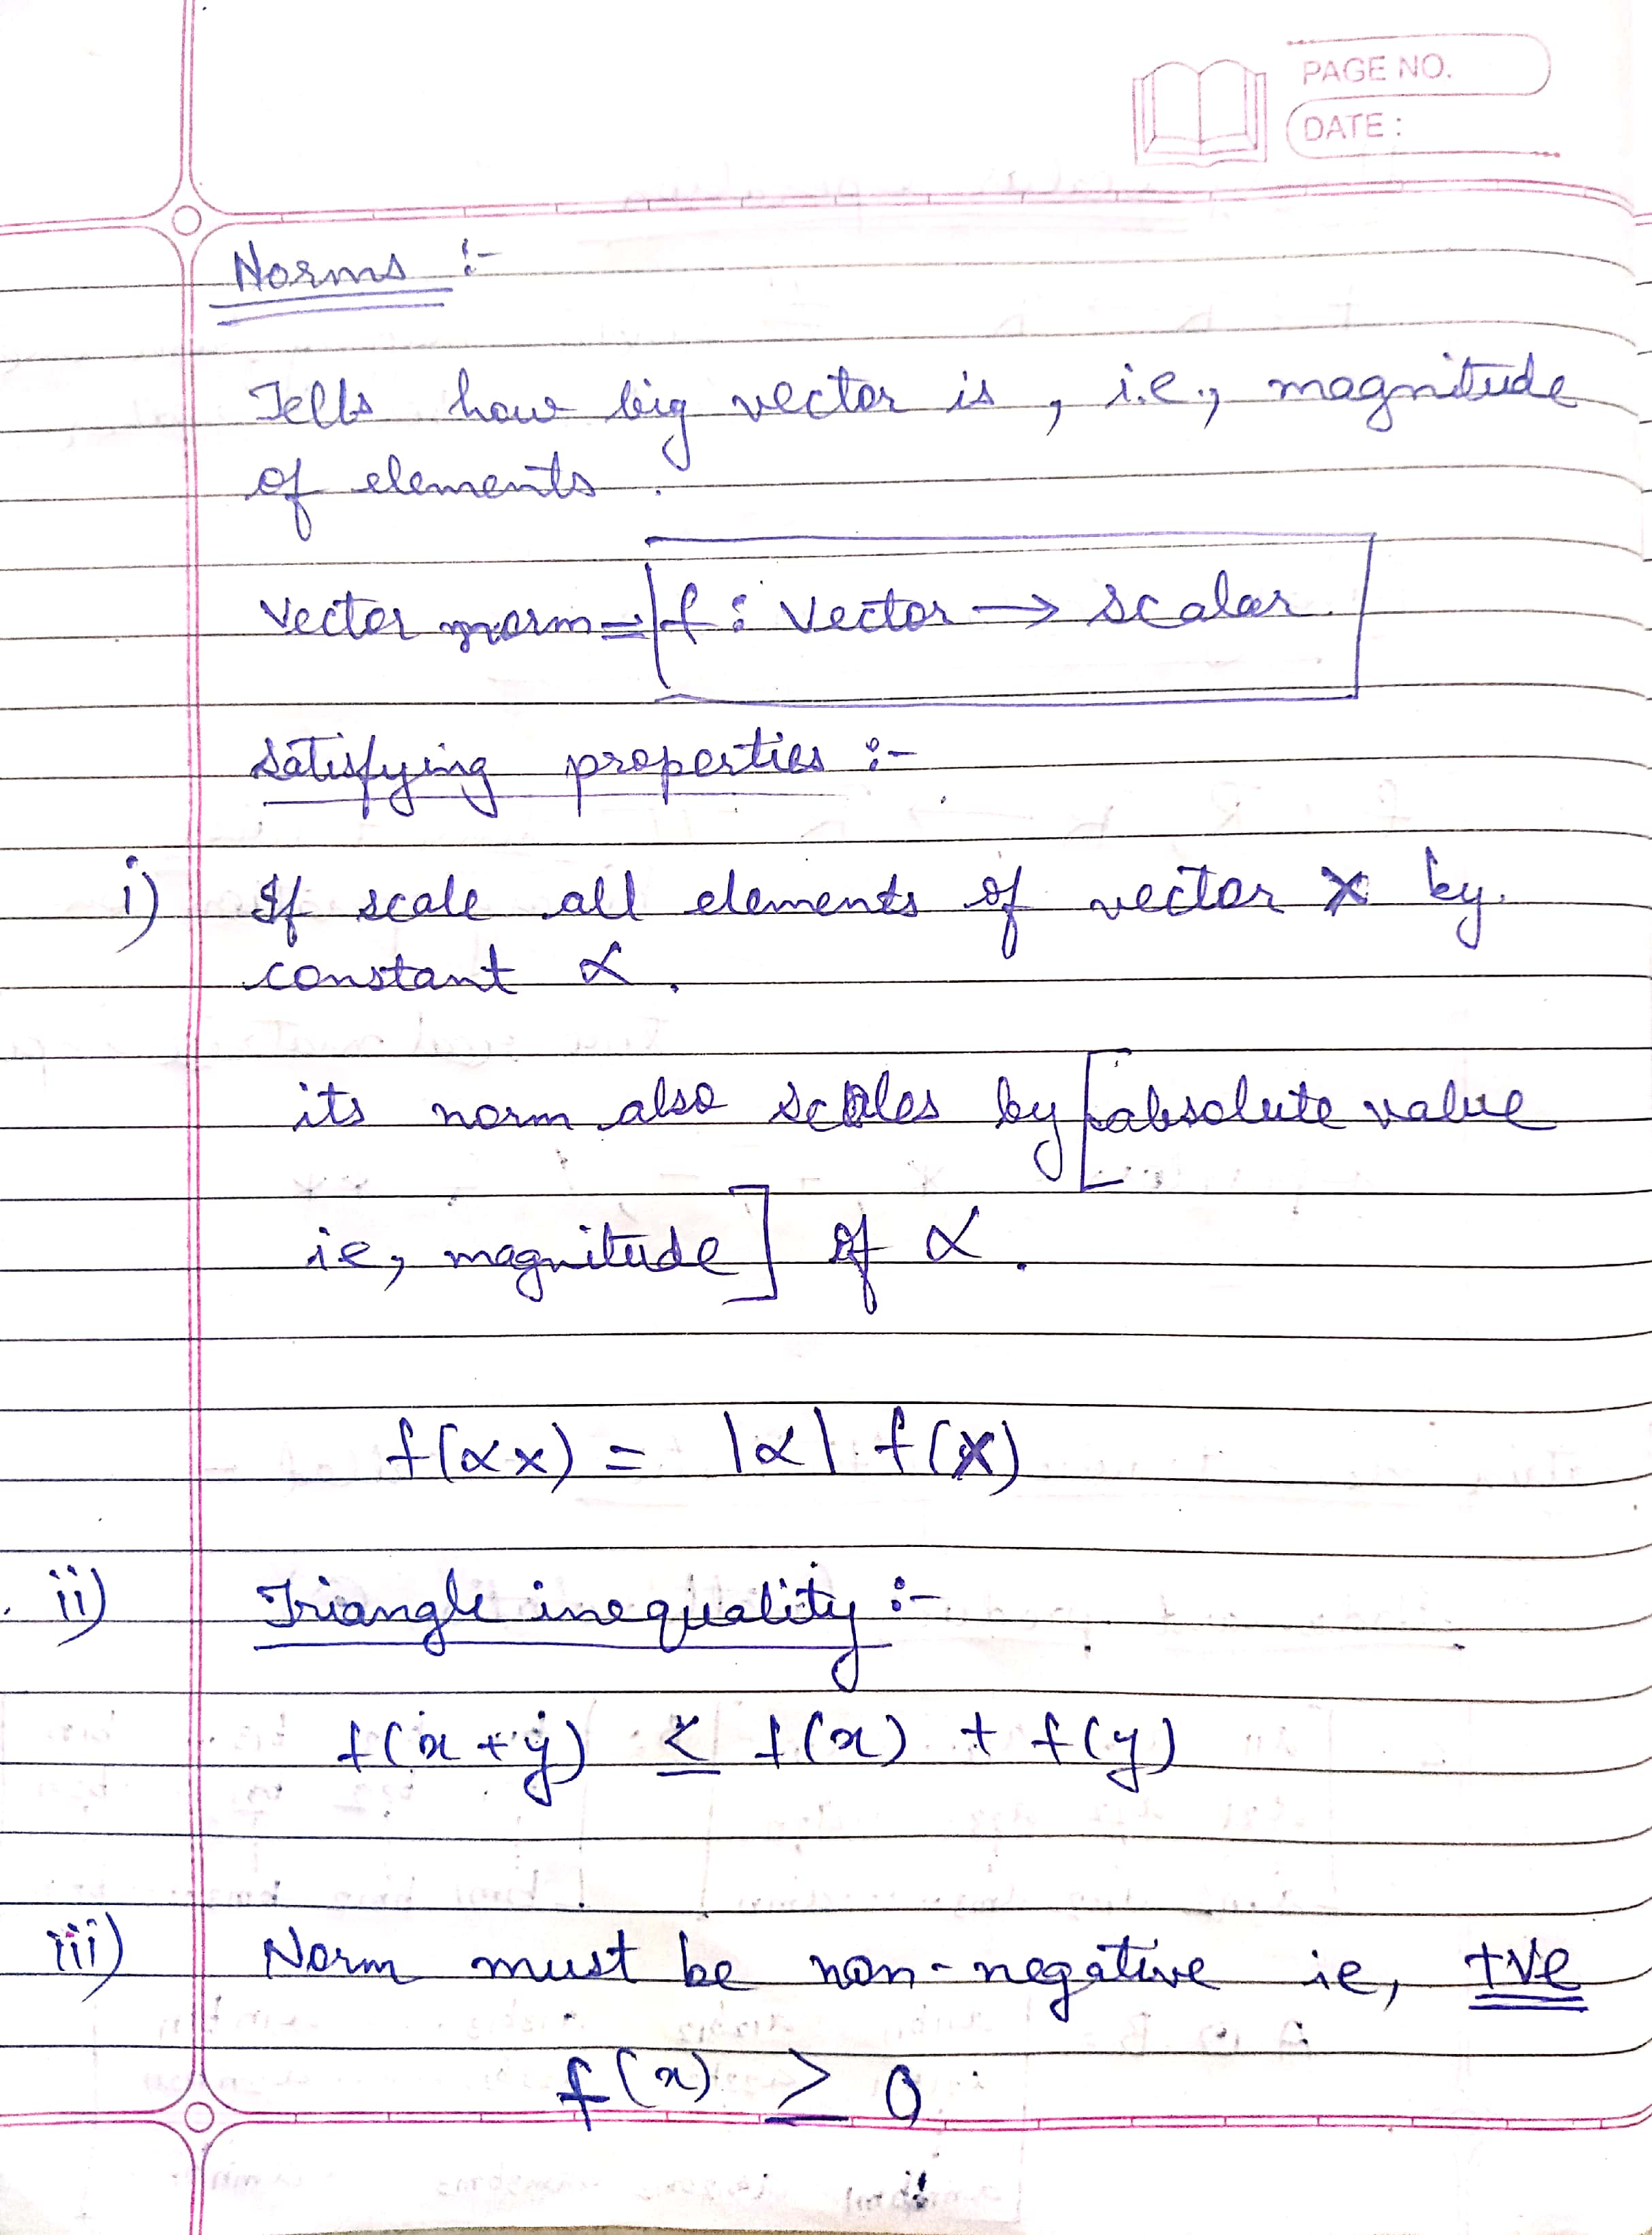 PAGE NO.
DATE :
Norms :-
Tells how big vector is , i.e., magnitude
of elements .
Vector norm = f : Vector → scalar
satisfying properties :-
i) If scale all elements of vector x by
constant α .
its norm also scales by [absolute value
ie, magnitude] of α .
f(αx) = |α| f(x)
ii) Triangle inequality :-
f(x + y) ≤ f(x) + f(y)
iii) Norm must be non-negative ie, +ve
f(x) ≥ 0